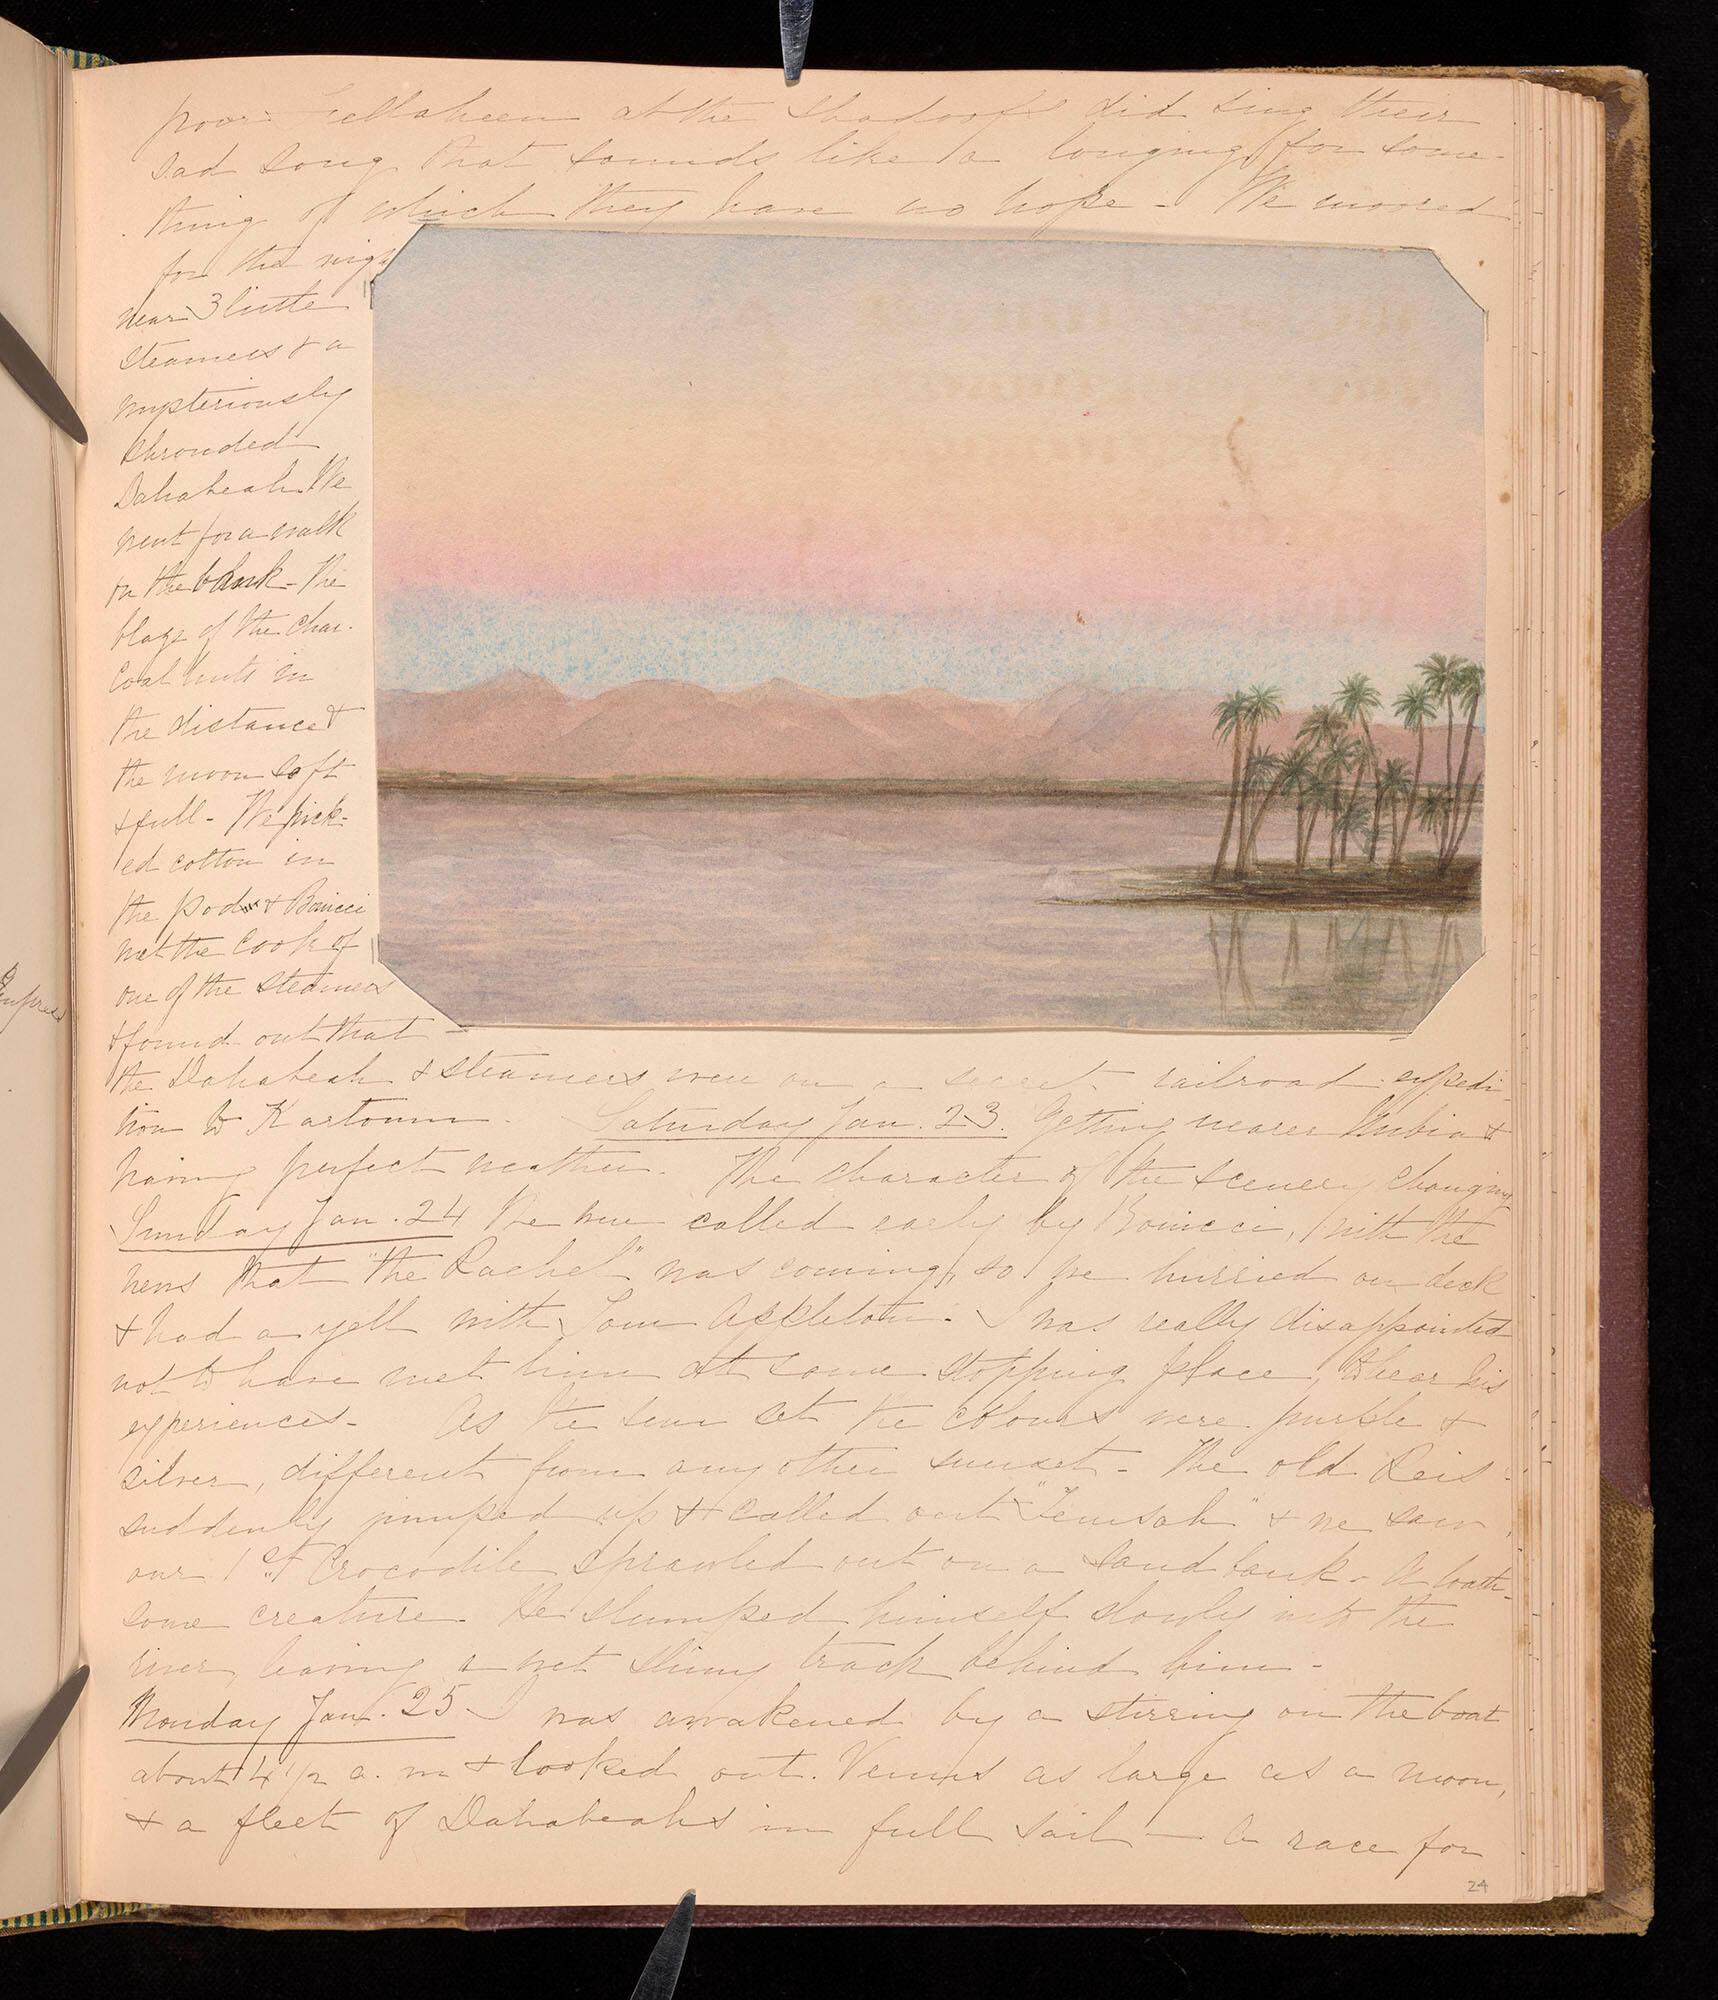 poor Fellaheen at the Shadoofs did sing their
sad song that sounds like a longing for some-
thing of which they have no hope - We moored
for the nigh
near 3 little
steamers & a
mysteriously
shrouded
Dahabeah. We
went for a walk
on the bank - The
blaze of the char-
coal huts in
the distance &
the moon soft
& full - We pick-
ed cotton in
the pod & Bonicci
met the Cook of
one of the steamers
& found out that -
the Dahabeah & steamers were on a secret railroad expedi-
tion to Kartoum - Saturday Jan. 23. Getting nearer Nubia &
having perfect weather. The character of the scenery changing
Sunday Jan. 24 We were called early by Bonicci, with the
news that "the Rachel" was coming, so we hurried on deck
& had a yell with Tom Appleton. I was really disappointed
not to have met him at some stopping place, to hear his
experiences - As the sun set the colours were purple &
silver, different from any other sunset - The old Reis
suddenly jumped up & called out "Temsah" & we saw
our 1st Crocodile sprawled out on a sand bank - A loath-
some creature. He slumped himself slowly into the
river, leaving a wet slimy track behind him -
Monday Jan. 25 - I was awakened by a stirring on the boat
about 4 1/2 a.m & looked out. Venus as large as a moon,
& a fleet of Dahabeahs in full sail - A race for
24